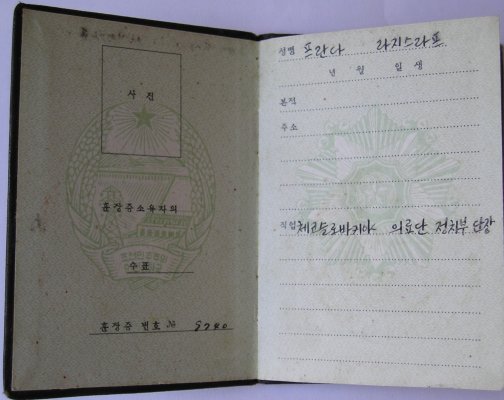 사진
훈장증소유자의
수표
훈장증 번호 № 9740
성명 프란다 라지스라프
년 월 일 생
본적
주소
직업 체코슬로바키아 의료단 정치부 단장